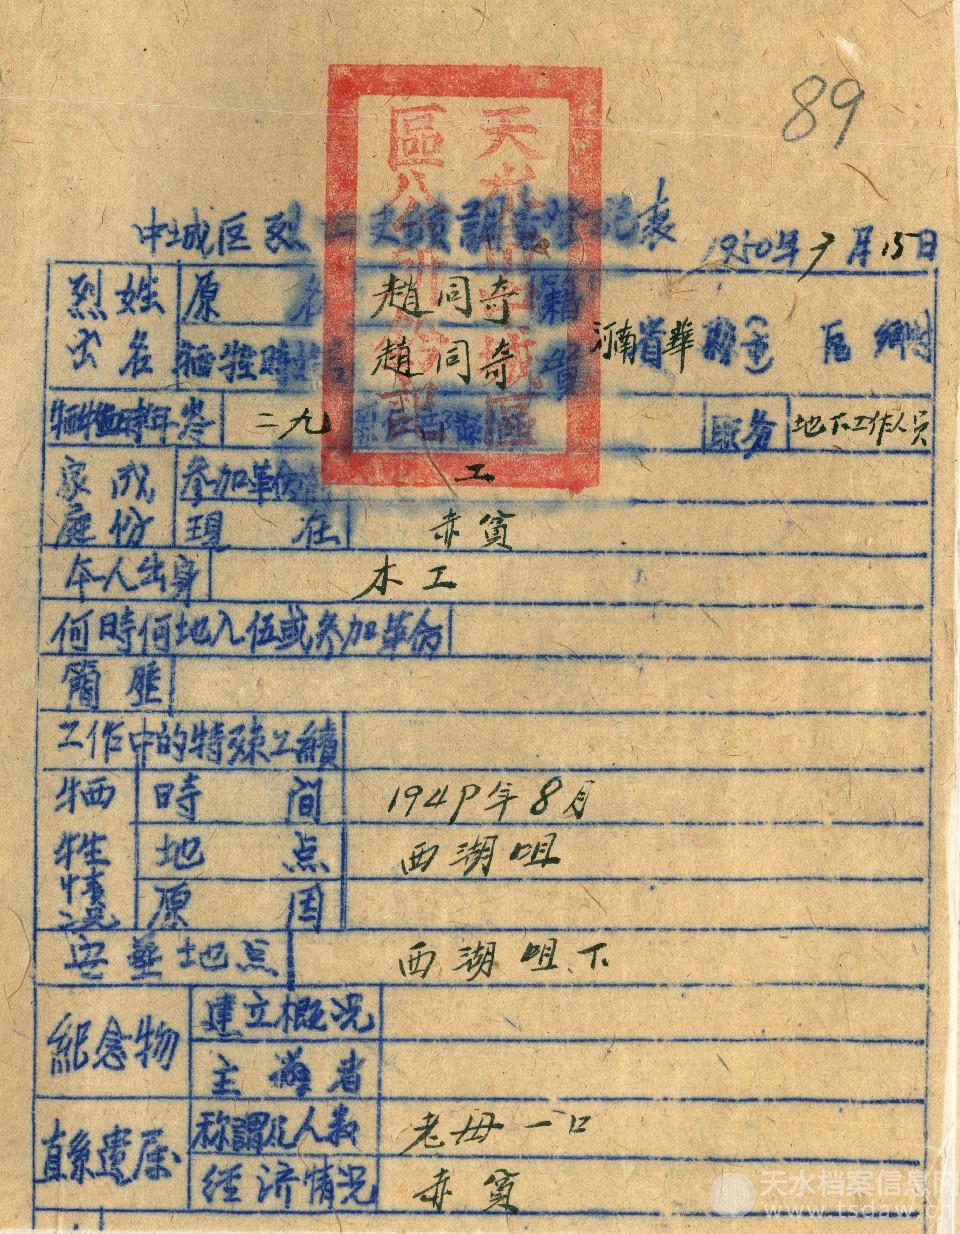 89
中城区烈士史績調查登記表 1950年7月15日
烈士姓名 原名 趙同奇 籍貫 河南省華縣(市) 区 鄉
牺牲時 趙同奇
牺牲時年岺 二九 职务 地下工作人員
家庭成份 参加革命 工
現在 赤貧
本人出身 木工
何時何地入伍或参加革命
簡歷
工作中的特殊工績
牺牲情况 時間 1949年8月
地点 西湖咀
原因
安葬地点 西湖咀下
紀念物 建立概况
主導者
直系遺属 称謂及人数 老母一口
经济情况 赤貧
天水档案信息网
www.tsdaw.cn